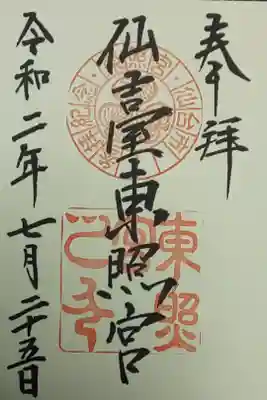 奉拝
仙臺東照宮
令和二年七月二十五日
仙台市
東照